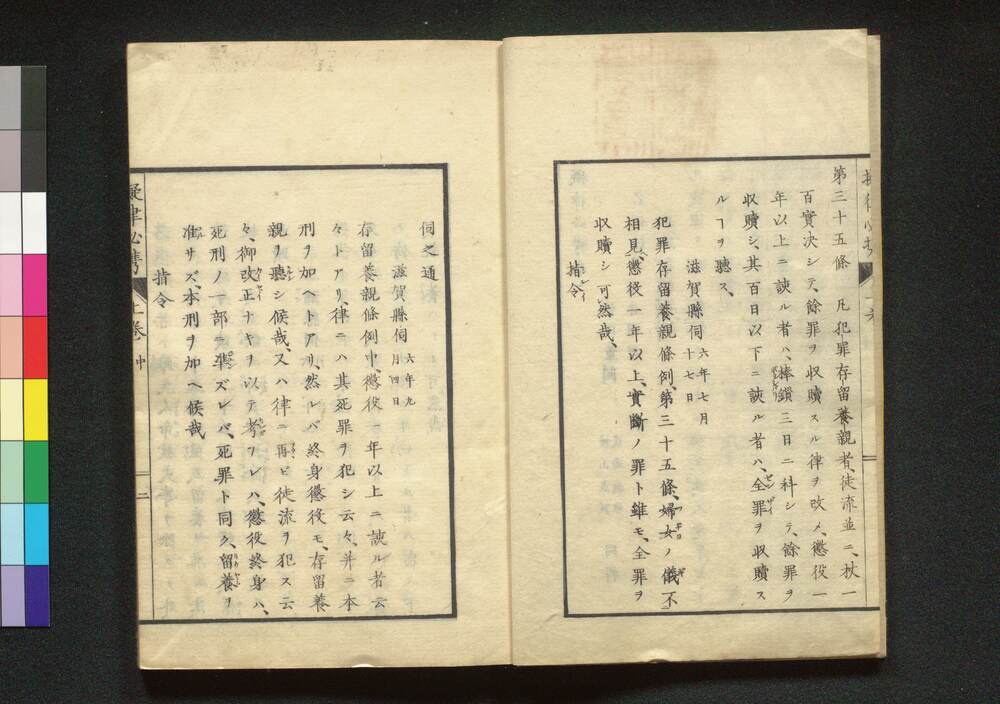 第三十五條 凡犯罪存留養親者、徒流並ニ、杖一
百實決シテ、餘罪ヲ収贖スル律ヲ改メ、懲役一
年以上ニ該ル者ハ、棒鎖三日ニ科シテ、餘罪ヲ
収贖シ、其百日以下ニ該ル者ハ、全罪ヲ収贖ス
ルヿヲ聽ス、
滋賀縣伺 六年七月十七日
犯罪存留養親條例、第三十五條、婦女ノ儀不
相見、懲役一年以上、實斷ノ罪ト雖モ、全罪ヲ
収贖シ可然哉、
指令
伺之通
滋賀縣伺 六年九月四日
存留養親條例中、懲役一年以上ニ該ル者云
々トアリ、律ニハ其死罪ヲ犯シ云々、并ニ本
刑ヲ加ヘトアリ、然レバ終身懲役モ、存留養
親ヲ聽シ候哉、又ハ律ニ再ビ徒流ヲ犯ス云
々、御改正ナキヲ以テ考フレハ、懲役終身ハ、
死刑ノ部ニ準ズレバ、死罪ト同ク、留養ヲ
准サズ、本刑ヲ加ヘ候哉
指令
擬律必携 上卷 二